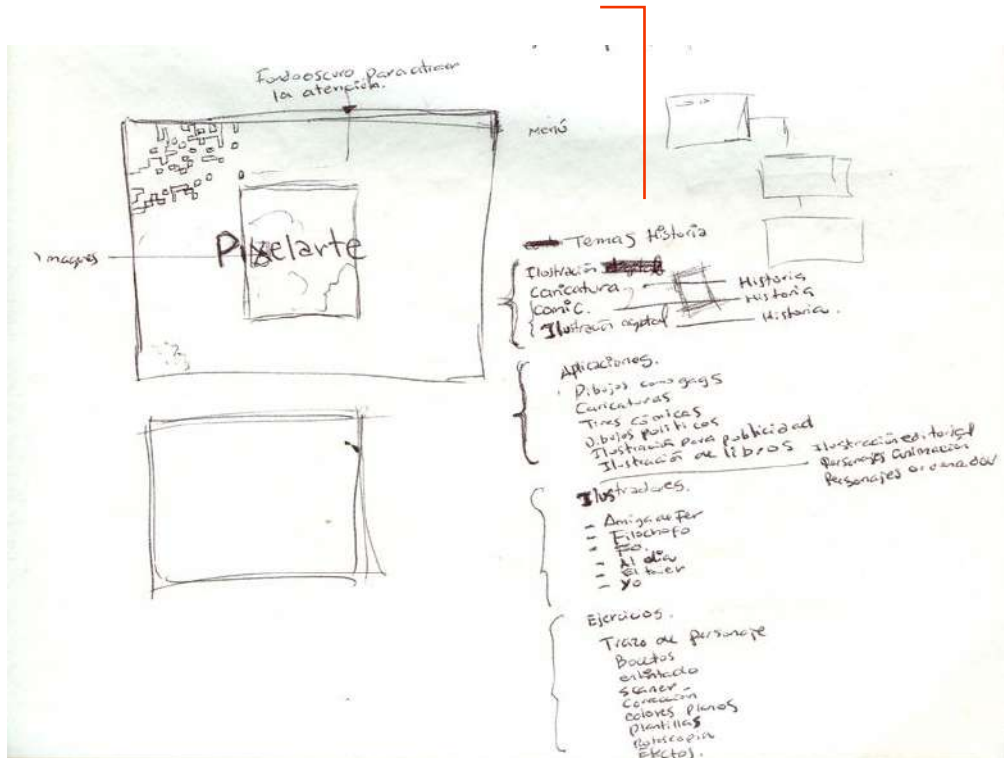 Fondo oscuro para atraer
la atención.
Menú
Imagenes
Pixelarte
Temas Historia
Ilustración
Caricatura Historia
comic. Historia
Ilustración digital Historia.
Aplicaciones.
Dibujos como gags
Caricaturas
Tiras cómicas
Dibujos políticos
Ilustración para publicidad
Ilustración de libros Ilustración editorial
Personajes animación
Personajes ordenador
Ilustradores.
- Amiga de Fer
- Filochofo
- Fo.
- Al día
- yo
Ejercicios.
Trazo de personaje
Bocetos
entintado
scaner
Corrección
colores planos
plantillas
Rotoscopia
Efectos.